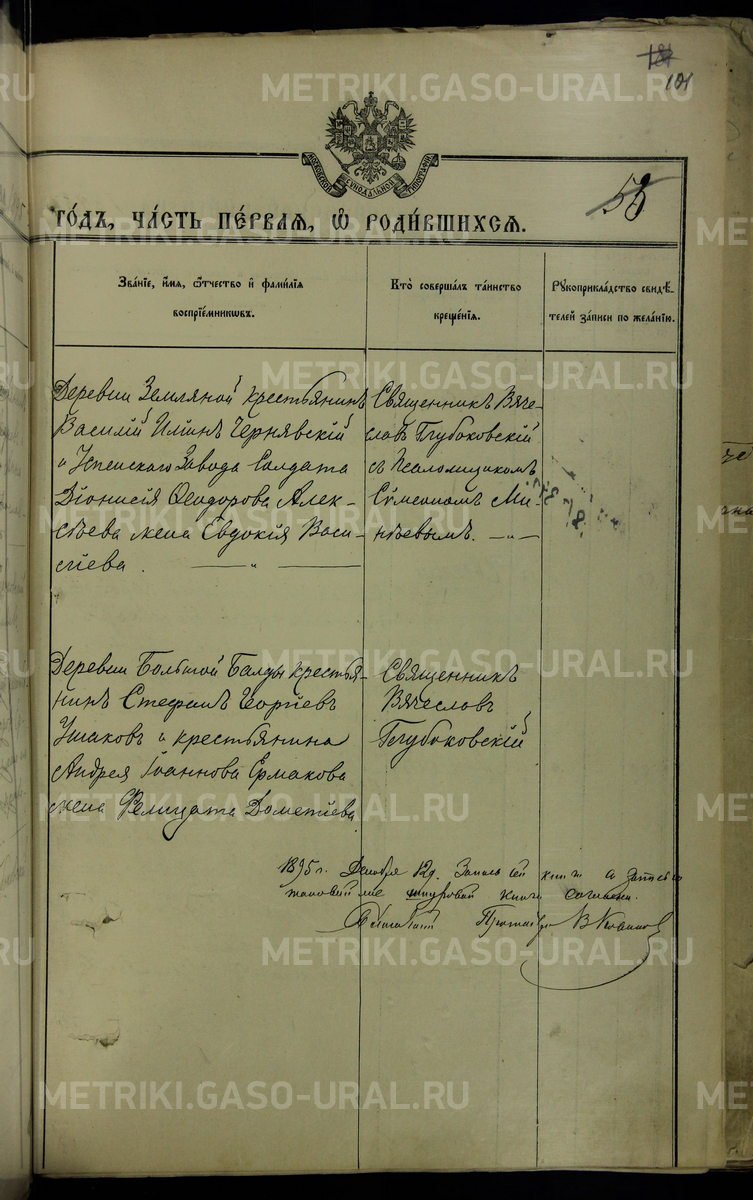 181
101
МОСКОВСКОЙ СѴНОДАЛЬНОЙ ТИПОГРАФІИ
58
ГО́ДЪ, ЧА́СТЬ ПЕ́РВАЯ, Ѡ҆ РОДИ́ВШИХСЯ.
Зва́нїе, и҆́мя, ѻ҆́тчество и҆ фами́лїя
воспрїе́мникѡвъ.
Кто̀ соверша́лъ та́инство
креще́нїя.
Рꙋкоприкла́дство свидѣ́-
телей за́писи по жела́нїю.
Деревни Земляной крестьянинъ
Василій Илiинъ Чернявскій
и Успенскаго Завода Солдата
Діонисія Ѳеодорова Алек-
сѣева жена Евдокія Васи-
лiева.
Священникъ Вяче-
славъ Глубоковскій
съ Псаломщикомъ
Сѵмеономъ Ми-
нѣевымъ.
Деревни Большой Балды крестья-
нинъ Стефанъ Георгіевъ
Ушаковъ и крестьянина
Андрея Іоаннова Ермакова
жена Фелицата Дометіева
Священникъ
Вячеславъ
Глубоковскій
1895 г. Декабря 12 д. Запись сей книги съ записью
шнуровой книги согласна.
METRIKI.GASO-URAL.RU